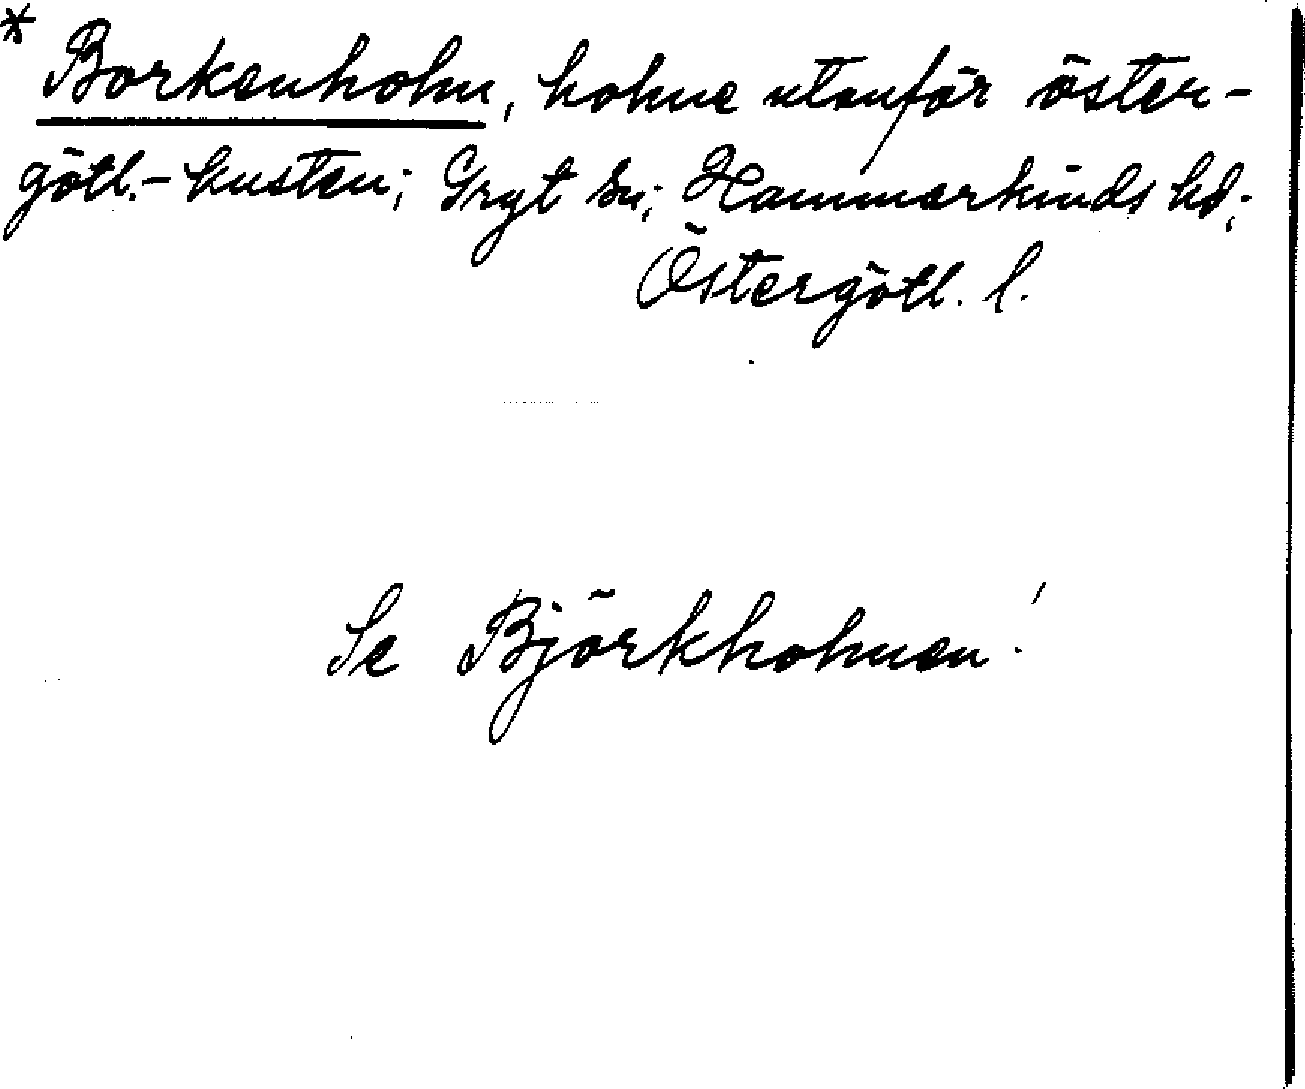 * Borkenholm, holme utanför öster-
götl.-kusten; Gryt sn; Hammarkinds hd;
Östergötl. l.
Se Björkholmen!